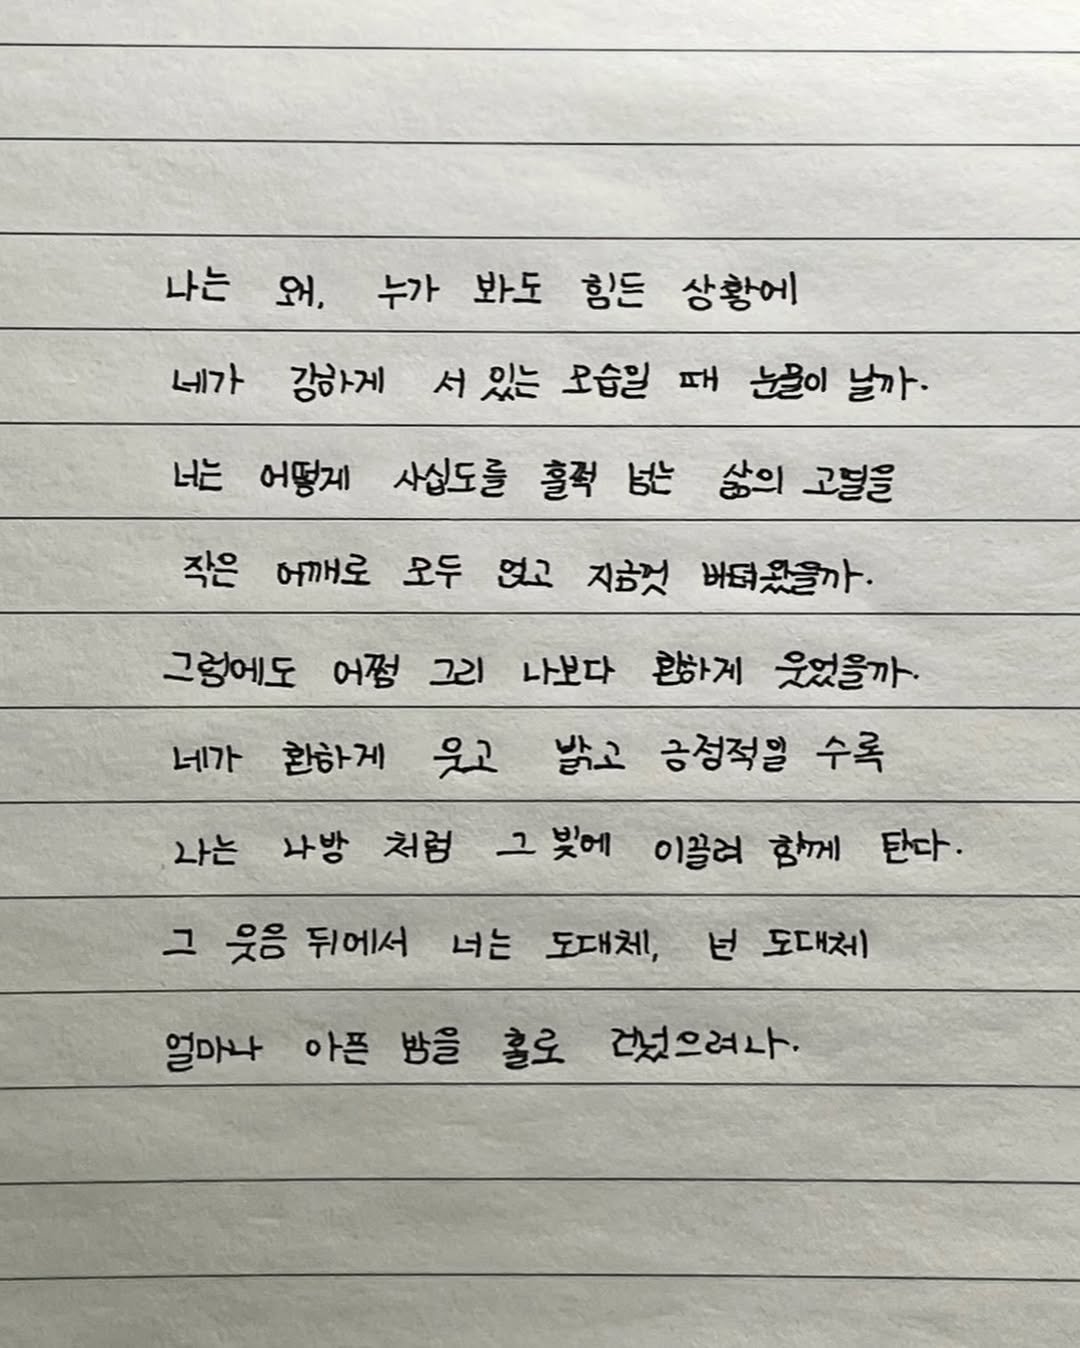 나는 왜, 누가 봐도 힘든 상황에
네가 강하게 서 있는 모습일 때 눈물이 날까.
너는 어떻게 사십도를 훌쩍 넘는 삶의 고열을
작은 어깨로 모두 얹고 지금껏 버텨왔을까.
그럼에도 어쩜 그리 나보다 환하게 웃었을까.
네가 환하게 웃고 밝고 긍정적일 수록
나는 나방 처럼 그 빛에 이끌려 함께 탄다.
그 웃음 뒤에서 너는 도대체, 넌 도대체
얼마나 아픈 밤을 홀로 건넜으려나.